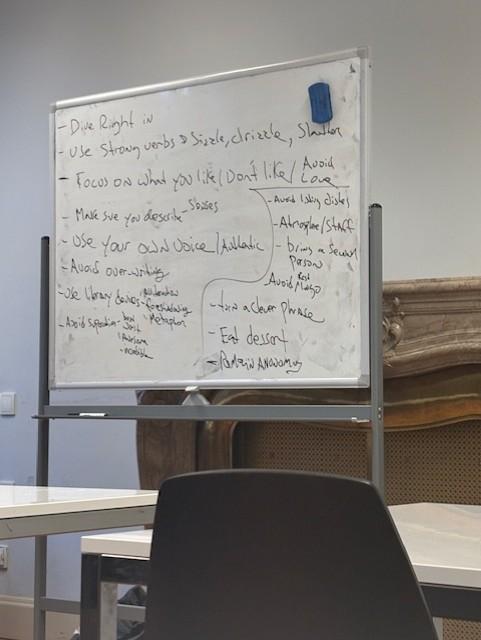 - Dive Right in
- Use Strong verbs Sizzle, drizzle, Slather
- Focus on what you like / Don't like / Avoid Love
- Make sure you describe - 5 senses
- Use your own voice / Authentic
- Avoid overwriting
- Use literary devices - alliteration
- foreshadowing
- Metaphor
- Avoid superlatives - best
- worst
- Awesome
- incredible
- Avoid listing dishes
- Atmosphere / Staff
- bring a second person
- Avoid
- turn a clever phrase
- Eat dessert
- Remain Anonomous